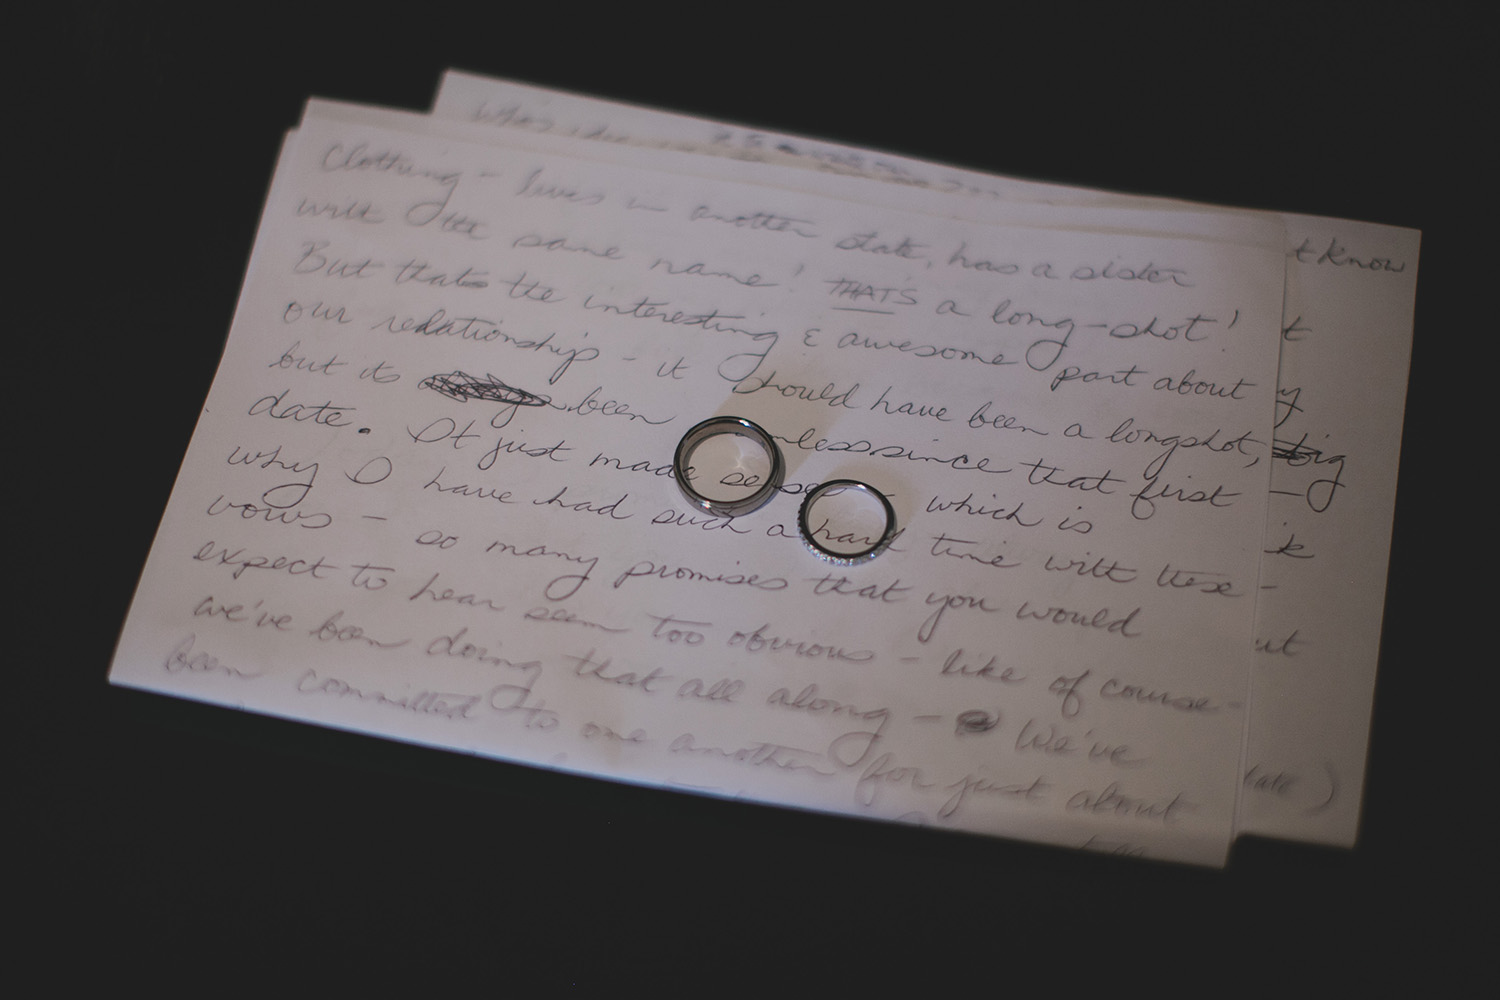 Clothing - lives in another state, has a sister
with the same name! THAT'S a long-shot!
But thats the interesting & awesome part about
our relationship - it should have been a longshot,
but its been since that first
date. It just made sense - which is
why I have had such a hard time with these -
vows - so many promises that you would
expect to hear seem too obvious - like of course -
we've been doing that all along - We've
been committed to one another for just about
t know
t
y
big
k
ut